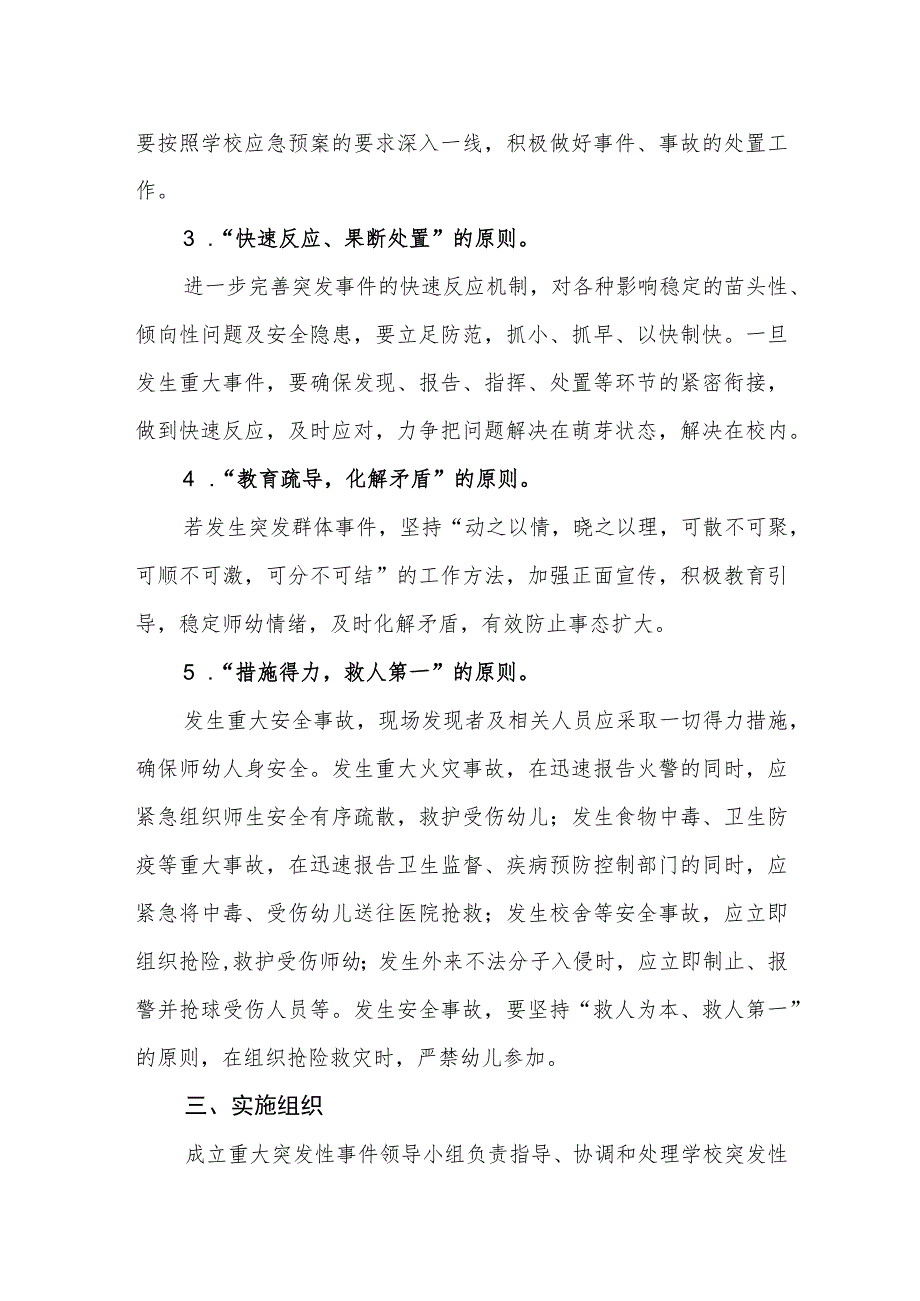 要按照学校应急预案的要求深入一线，积极做好事件、事故的处置工
作。
3 .“快速反应、果断处置”的原则。
进一步完善突发事件的快速反应机制，对各种影响稳定的苗头性、
倾向性问题及安全隐患，要立足防范，抓小、抓早、以快制快。一旦
发生重大事件，要确保发现、报告、指挥、处置等环节的紧密衔接，
做到快速反应，及时应对，力争把问题解决在萌芽状态，解决在校内。
4 .“教育疏导，化解矛盾”的原则。
若发生突发群体事件，坚持“动之以情，晓之以理，可散不可聚，
可顺不可激，可分不可结”的工作方法，加强正面宣传，积极教育引
导，稳定师幼情绪，及时化解矛盾，有效防止事态扩大。
5 .“措施得力，救人第一”的原则。
发生重大安全事故，现场发现者及相关人员应采取一切得力措施，
确保师幼人身安全。发生重大火灾事故，在迅速报告火警的同时，应
紧急组织师生安全有序疏散，救护受伤幼儿；发生食物中毒、卫生防
疫等重大事故，在迅速报告卫生监督、疾病预防控制部门的同时，应
紧急将中毒、受伤幼儿送往医院抢救；发生校舍等安全事故，应立即
组织抢险,救护受伤师幼；发生外来不法分子入侵时，应立即制止、报
警并抢球受伤人员等。发生安全事故，要坚持“救人为本、救人第一”
的原则，在组织抢险救灾时，严禁幼儿参加。
三、实施组织
成立重大突发性事件领导小组负责指导、协调和处理学校突发性